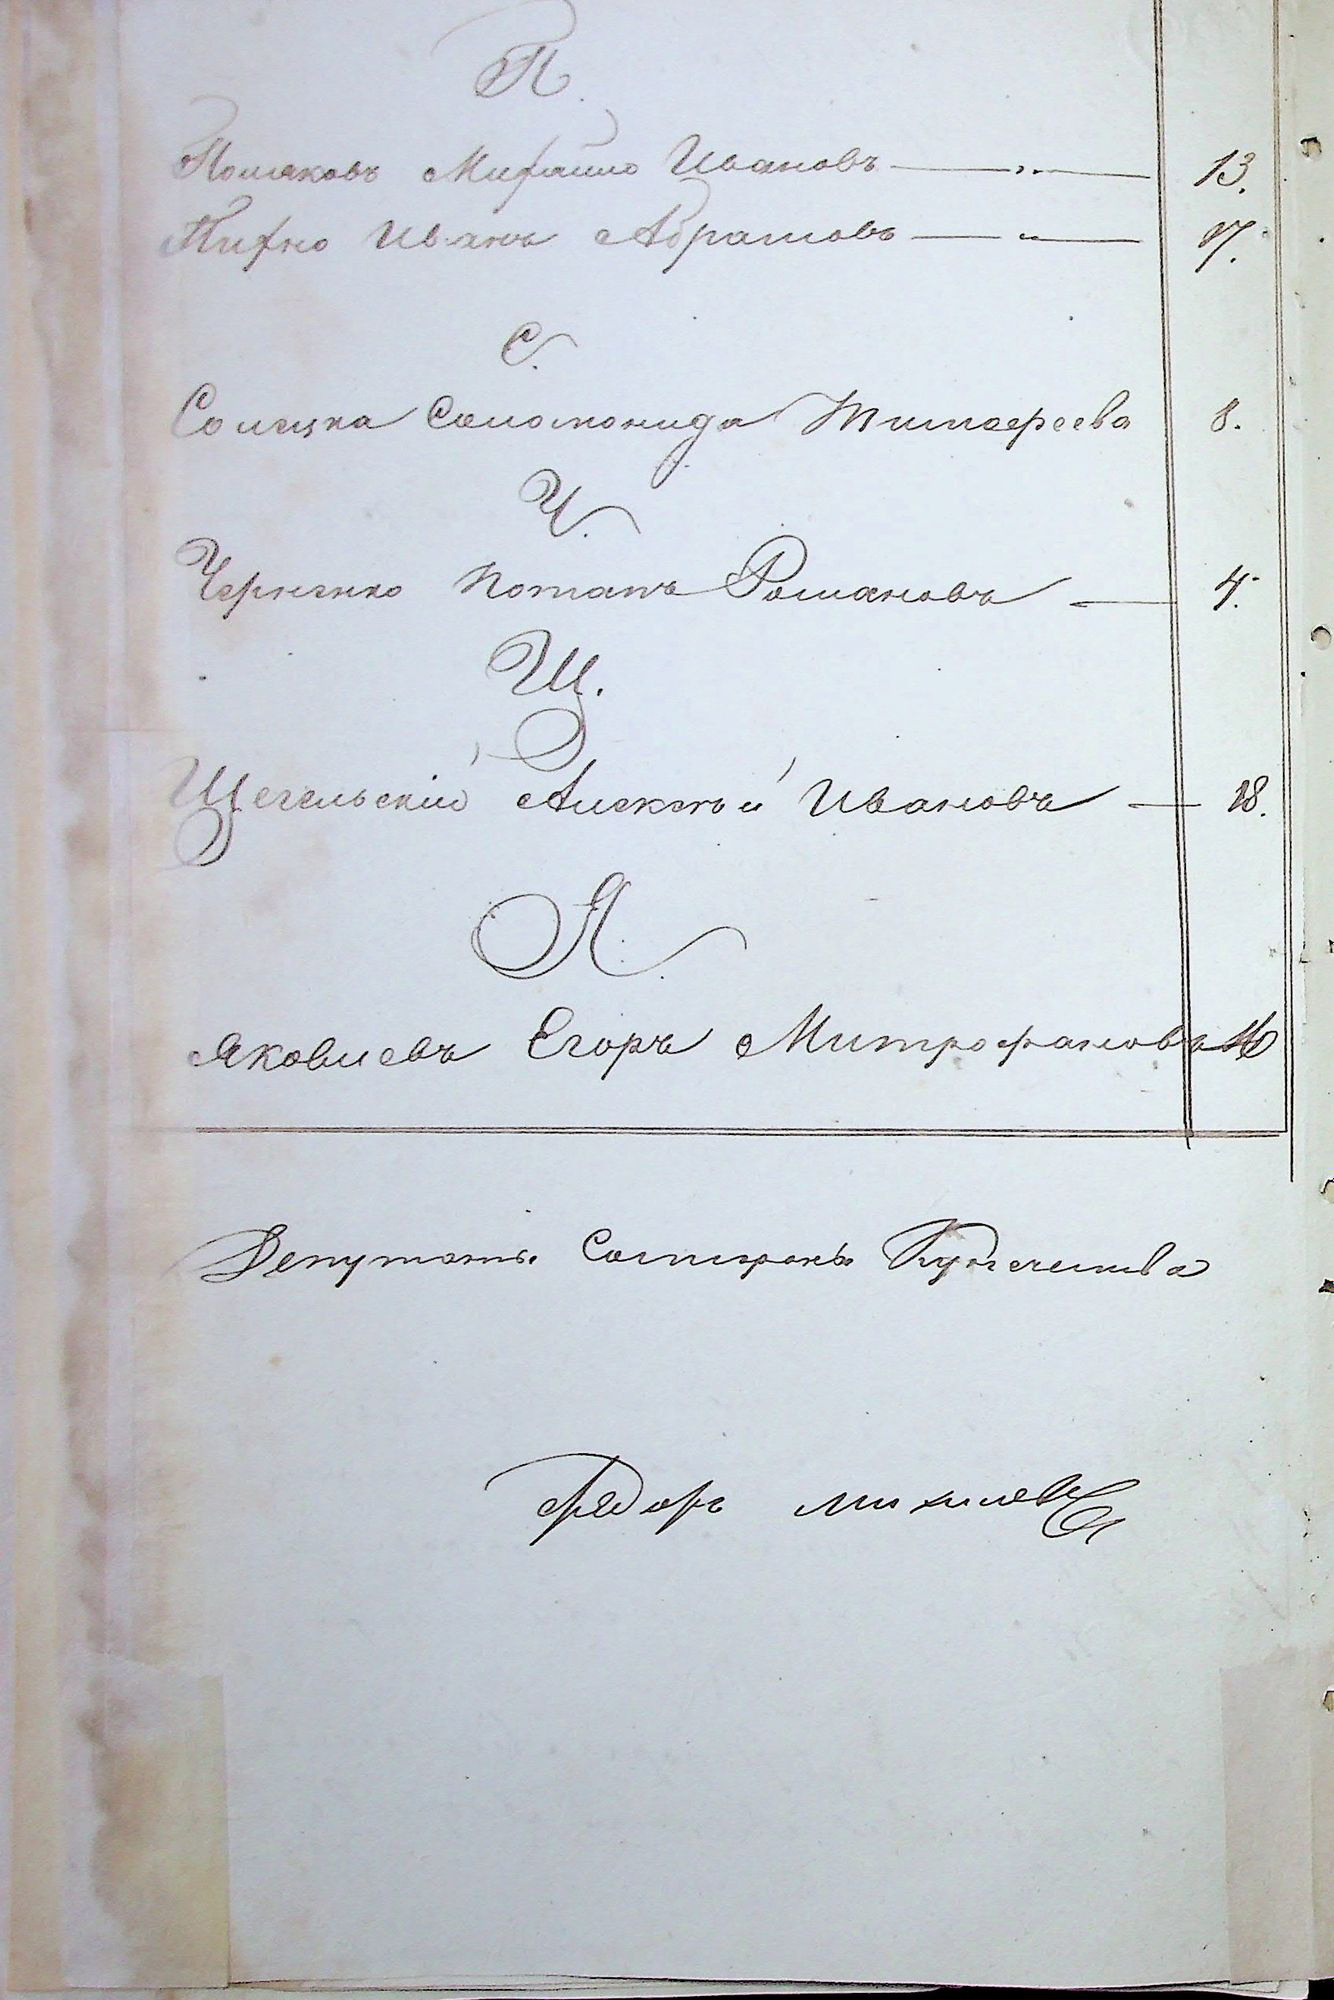 П.
Поляковъ Михайло Ивановъ — „ — 13.
Пихно Иванъ Абрамовъ — „ — 17.
С.
Солецка Соломонида Тимофеева 8.
Ч.
Черненко Потапъ Романовъ — 4.
Щ.
Щегельскій Алексѣй Ивановъ — 18.
Я.
Яковлевъ Егоръ Митрофановъ 16
Депутатъ Состороны Купечества
Федоръ